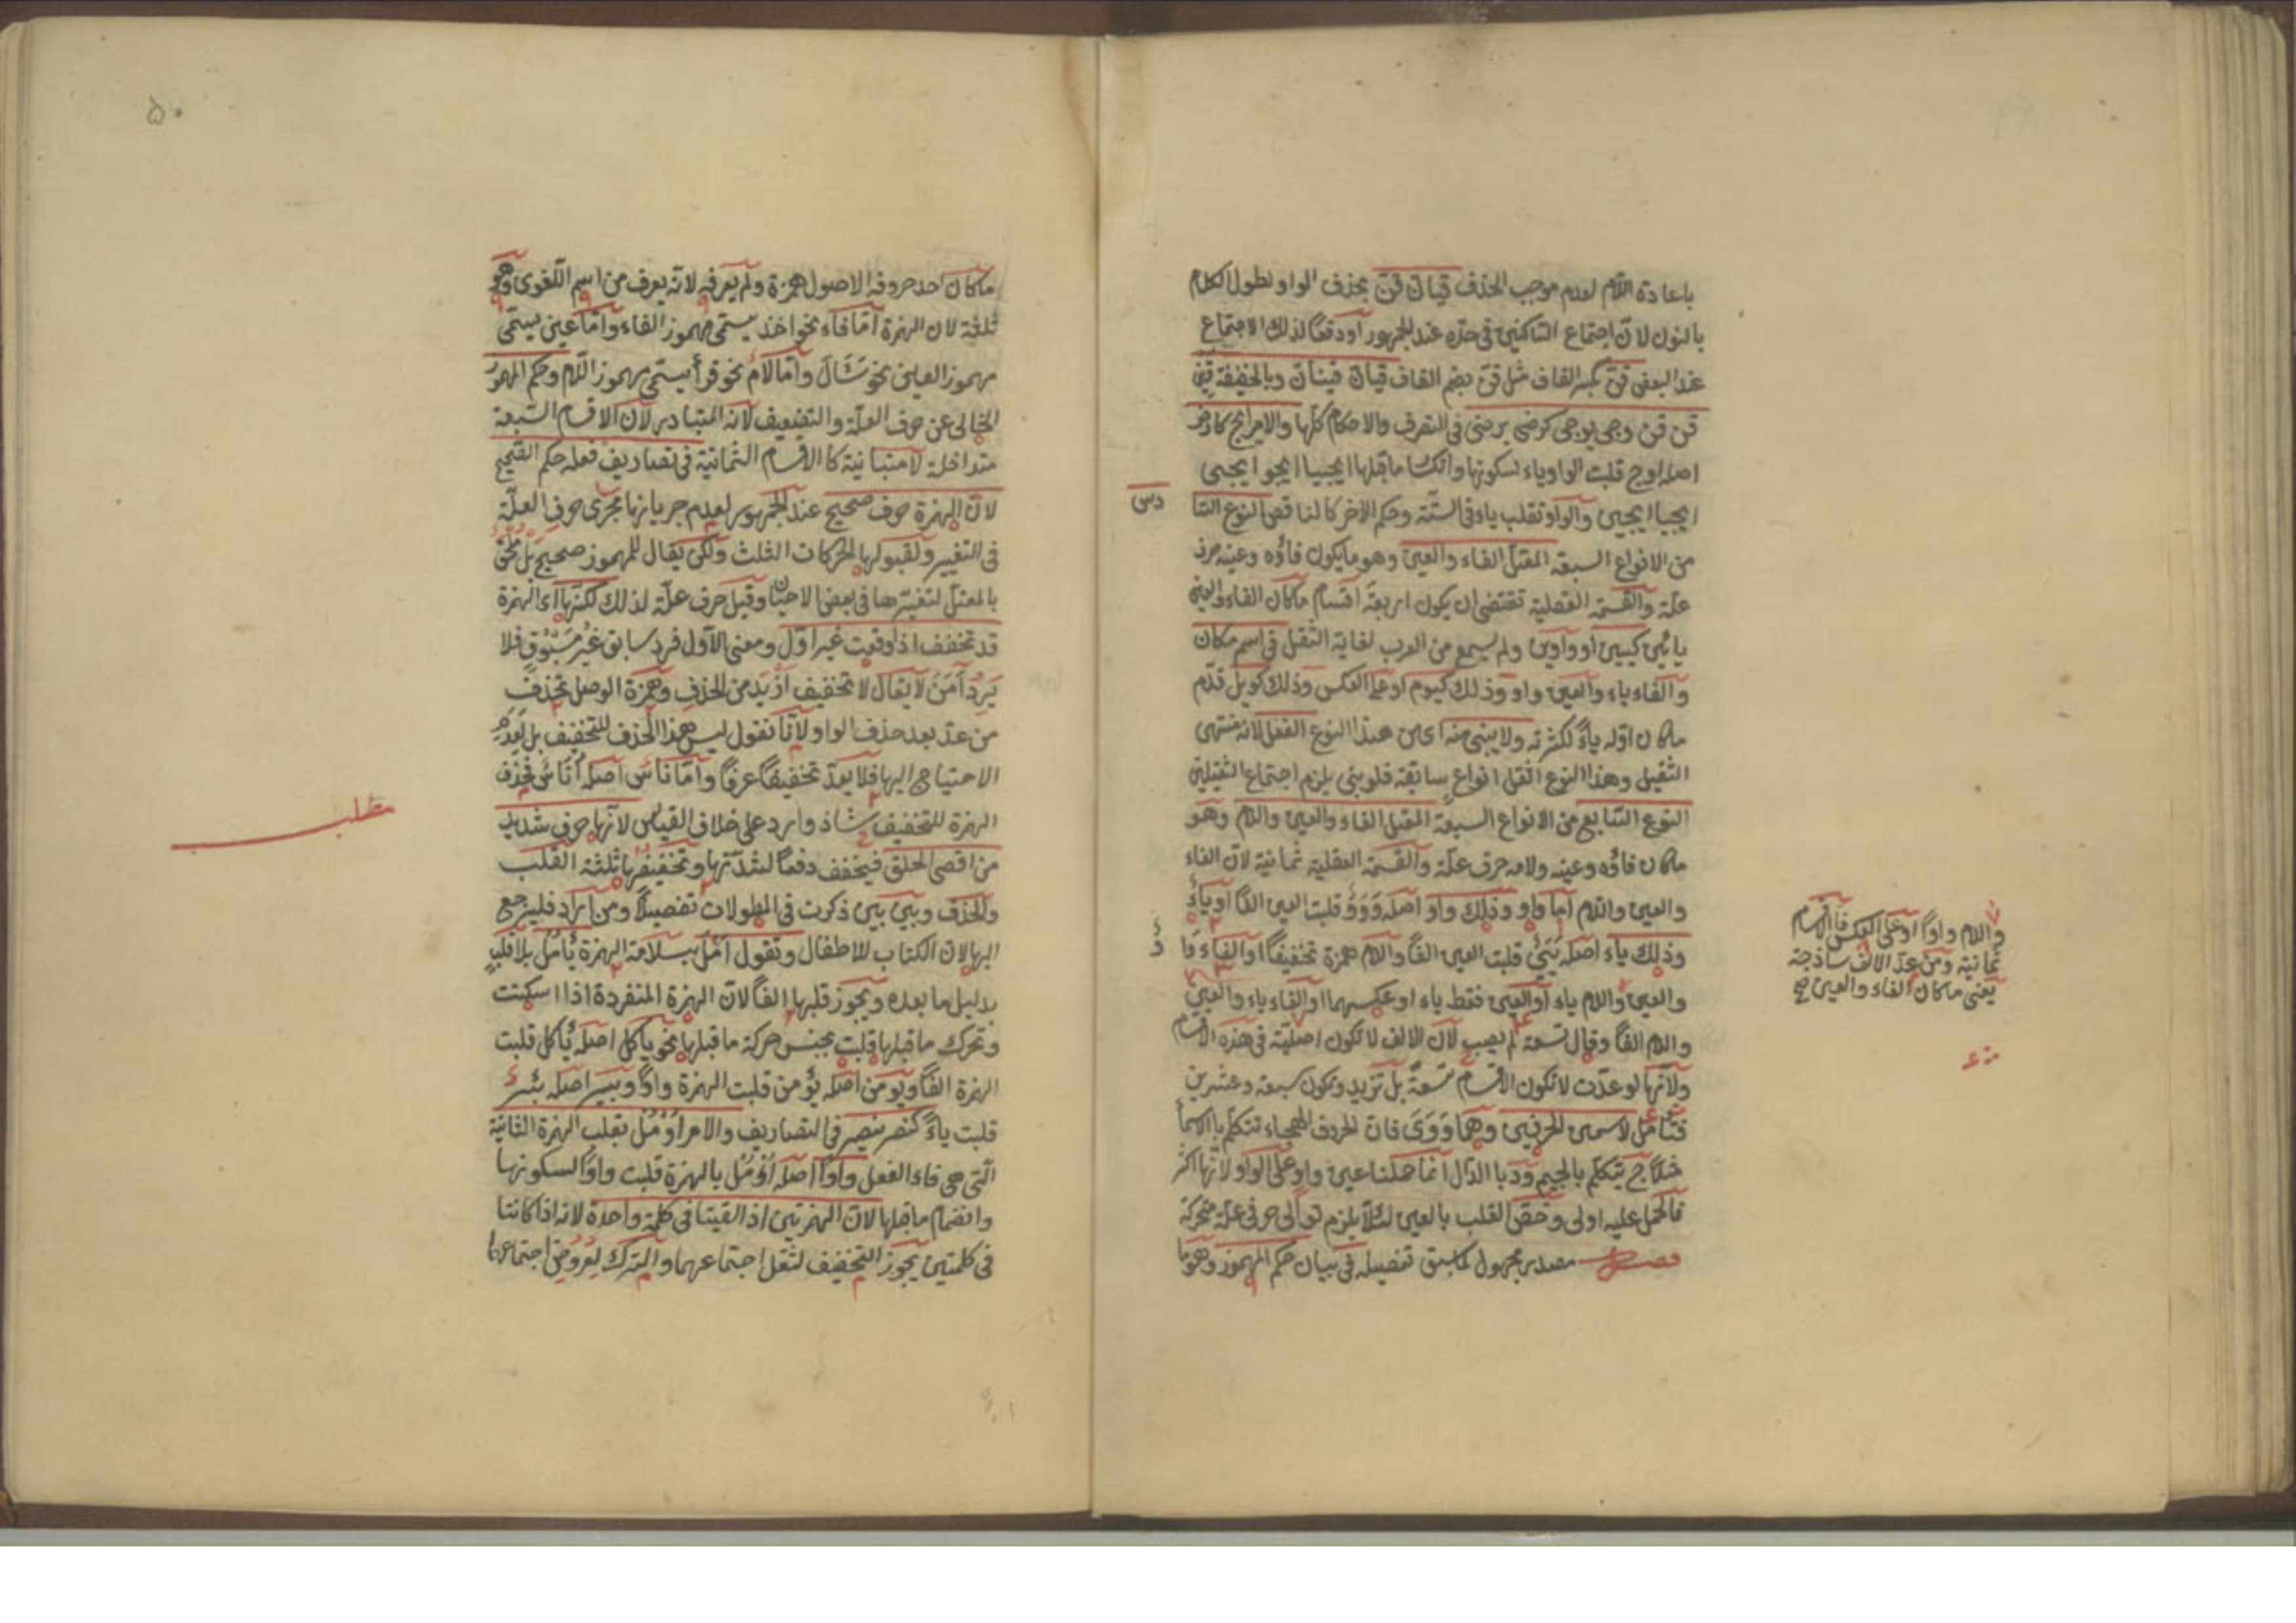 باعادة اللام لعدم موجب الحذف قيان قنّ بحذف الواو لطول الكلام
بالنون لانّ اجتماع الساكنين فى حدّه عند الجمهور او دفعًا لذلك الاجتماع
عند البعض قنّ بكسر القاف مثل قنّ بضم القاف قيانّ قينانّ وبالخفيفة قِيَنْ
قن قن وجى يوجى كرضى يرضى فى التصرف والاحكام كلّها والامر ايج كارض
اصله اوج قلبت الواو ياء لسكونها وانكسا ماقبلها ايجيا ايجوا ايجى
ايجيا ايجين والواو تقلب ياء فى الستّة وحكم الاخر كالناقص النوع السا
دس
من الانواع السبعة المعتل الفاء والعين وهو مايكون فاؤه وعينه حرف
علّة والقسمة العقلية تقتضى ان يكون اربعة اقسام ماكان الفاء والعين
يائين كيين او واوين ولم يسمع من العرب لغاية الثقل فى اسم مكان
والفاء ياء والعين واو وذلك كيوم او على العكس وذلك كويل قدّم
ماكان اوّله ياءً لكثرته ولا يبنى منه اى من هذا النوع الفعل لانه منتهى
الثقيل وهذا النوع اثقل انواع سابقة فلو بنى يلزم اجتماع الثقيلين
النوع السّابع من الانواع السبعة المعتل الفاء والعين واللام وهو
ماكان فاؤه وعينه ولامه حرف علّة والقسمة العقلية ثمانية لانّ الفاء
والعين واللام امّا واو وذلك واو اصله وَوَوٌ قلبت العين الفًا او ياءٌ
وذلك ياء اصله يَيَىٌ قلبت العين الفًا واللام همزة تخفيفًا او الفاء وَا
وٌ
والعين واللام ياء او العين فقط ياء او عكسهما او الفاء ياء والعين
واللام الفًا وقال تسعة لم يصب لان الالف لاتكون اصليّة فى هذه الاقسام
ولانّها لو عدّت لاتكون الاقسام تسعةً بل تزيد وتكون سبعة وعشرين
فتأمّل لاسمى الحرفين وهما وَوَىَ فان الحروف التهجاء تتكلّم باالاسمأ
مثلًا ج يتكلّم بالجيم ود با الدّال انما حملنا عين واو على الواو لانّها اكثر
فالحمل عليه اولى وخصّ القلب بالعين لئلّا يلزم توالى حرفى علّة متحركة
فصل مصدر مجهول لماسبق تفصيله فى بيان حكم المهموز وهو ما
واللام واوًا او على العكس فالاقسام
ثمانية ومن عدّ الالف ساذجة
يعنى ماكان الفاء والعين صح
منه
۵۰
ماكان احد حروفه الاصول همزة ولم يعرفه لانّه يعرف من اسم اللّغوى وهو
ثلثة لان الهمزة امّا فاء نحو اخذ يسمّى مهموز الفاء وامّا عين يسمّى
مهموز العين نحو سَئَالَ وامّا لامٌ نحو قرأ يسمّى مهموز اللّام وحكم المهموز
الخالى عن حرف العلّة والتضعيف لانّه المتبادر لان الاقسام السّبعة
متداخلة لا متباينية كا الاقسام الثمانية فى تصاريف فعله حكم الصّحيح
لانّ الهمزة حرف صحيح عند الجمهور لعدم جريانها مجرى حرف العلّة
فى التغيير ولقبولها الحركات الثلث ولكن يقال للمهموز صحيح بل ملحق
بالمعتلّ لتغيّرها فى بعض الاحيان وقيل حرف علّة لذلك لكنّها اى الهمزة
قد تخفف اذا وقعت غير اوّل ومعنى الاوّل فرد سابق غير مسبوق فلا
يَرِدُ أمَنَ لايقال لا تخفيف ازيد من الحذف وهمزة الوصل تحذف
من عدّ بعد حذف الواو لانّا نقول ليس هذا الحذف للتخفيف بل لِعَدَمِ
الاحتياج اليها فلا يعدّ تخفيفًا عرفًا وامّا ناسٌ اصله اُنَاسٌ فحذف
الهمزة للتخفيف شاذ وارد على خلاف القياس لانّها حرف شديد
مطلب
من اقصى الحلق فيخفف دفعًا لشدّتها وتخفيفُها ثلثة القلب
والحذف وبين بين ذكرت فى المطولات تفصيلًا ومن اراد فليرجع
اليها لانّ الكتاب للاطفال وتقول اَمَلَ بسلامة الهمزة يَأمُلُ بلا قلبٍ
بدليل مابعده ويجوز قلبها الفًا لانّ الهمزة المنفردة اذا اسكنت
وتحرك ماقبلها قلبت بجنس حركة ماقبلها نحو ياكل اصله يأكل قلبت
الهمزة الفًا ويومن اصله يؤمن قلبت الهمزة واوًا وبيير اصله بئير
قلبت ياءً كنصر ينصر فى التصاريف والامر اُوْمُلْ بقلب الهمزة الثانية
الّتى هى فاء الفعل واوًا اصله اُؤمُل بالهمزة قلبت واوًا لسكونها
وانضمام ماقبلها لانّ الهمزتين اذ القيتا فى كلمة واحدة لانه اذا كانتا
فى كلمتين يجوز التخفيف لثقل اجتماعهما والترك لعروض اجتماعهما